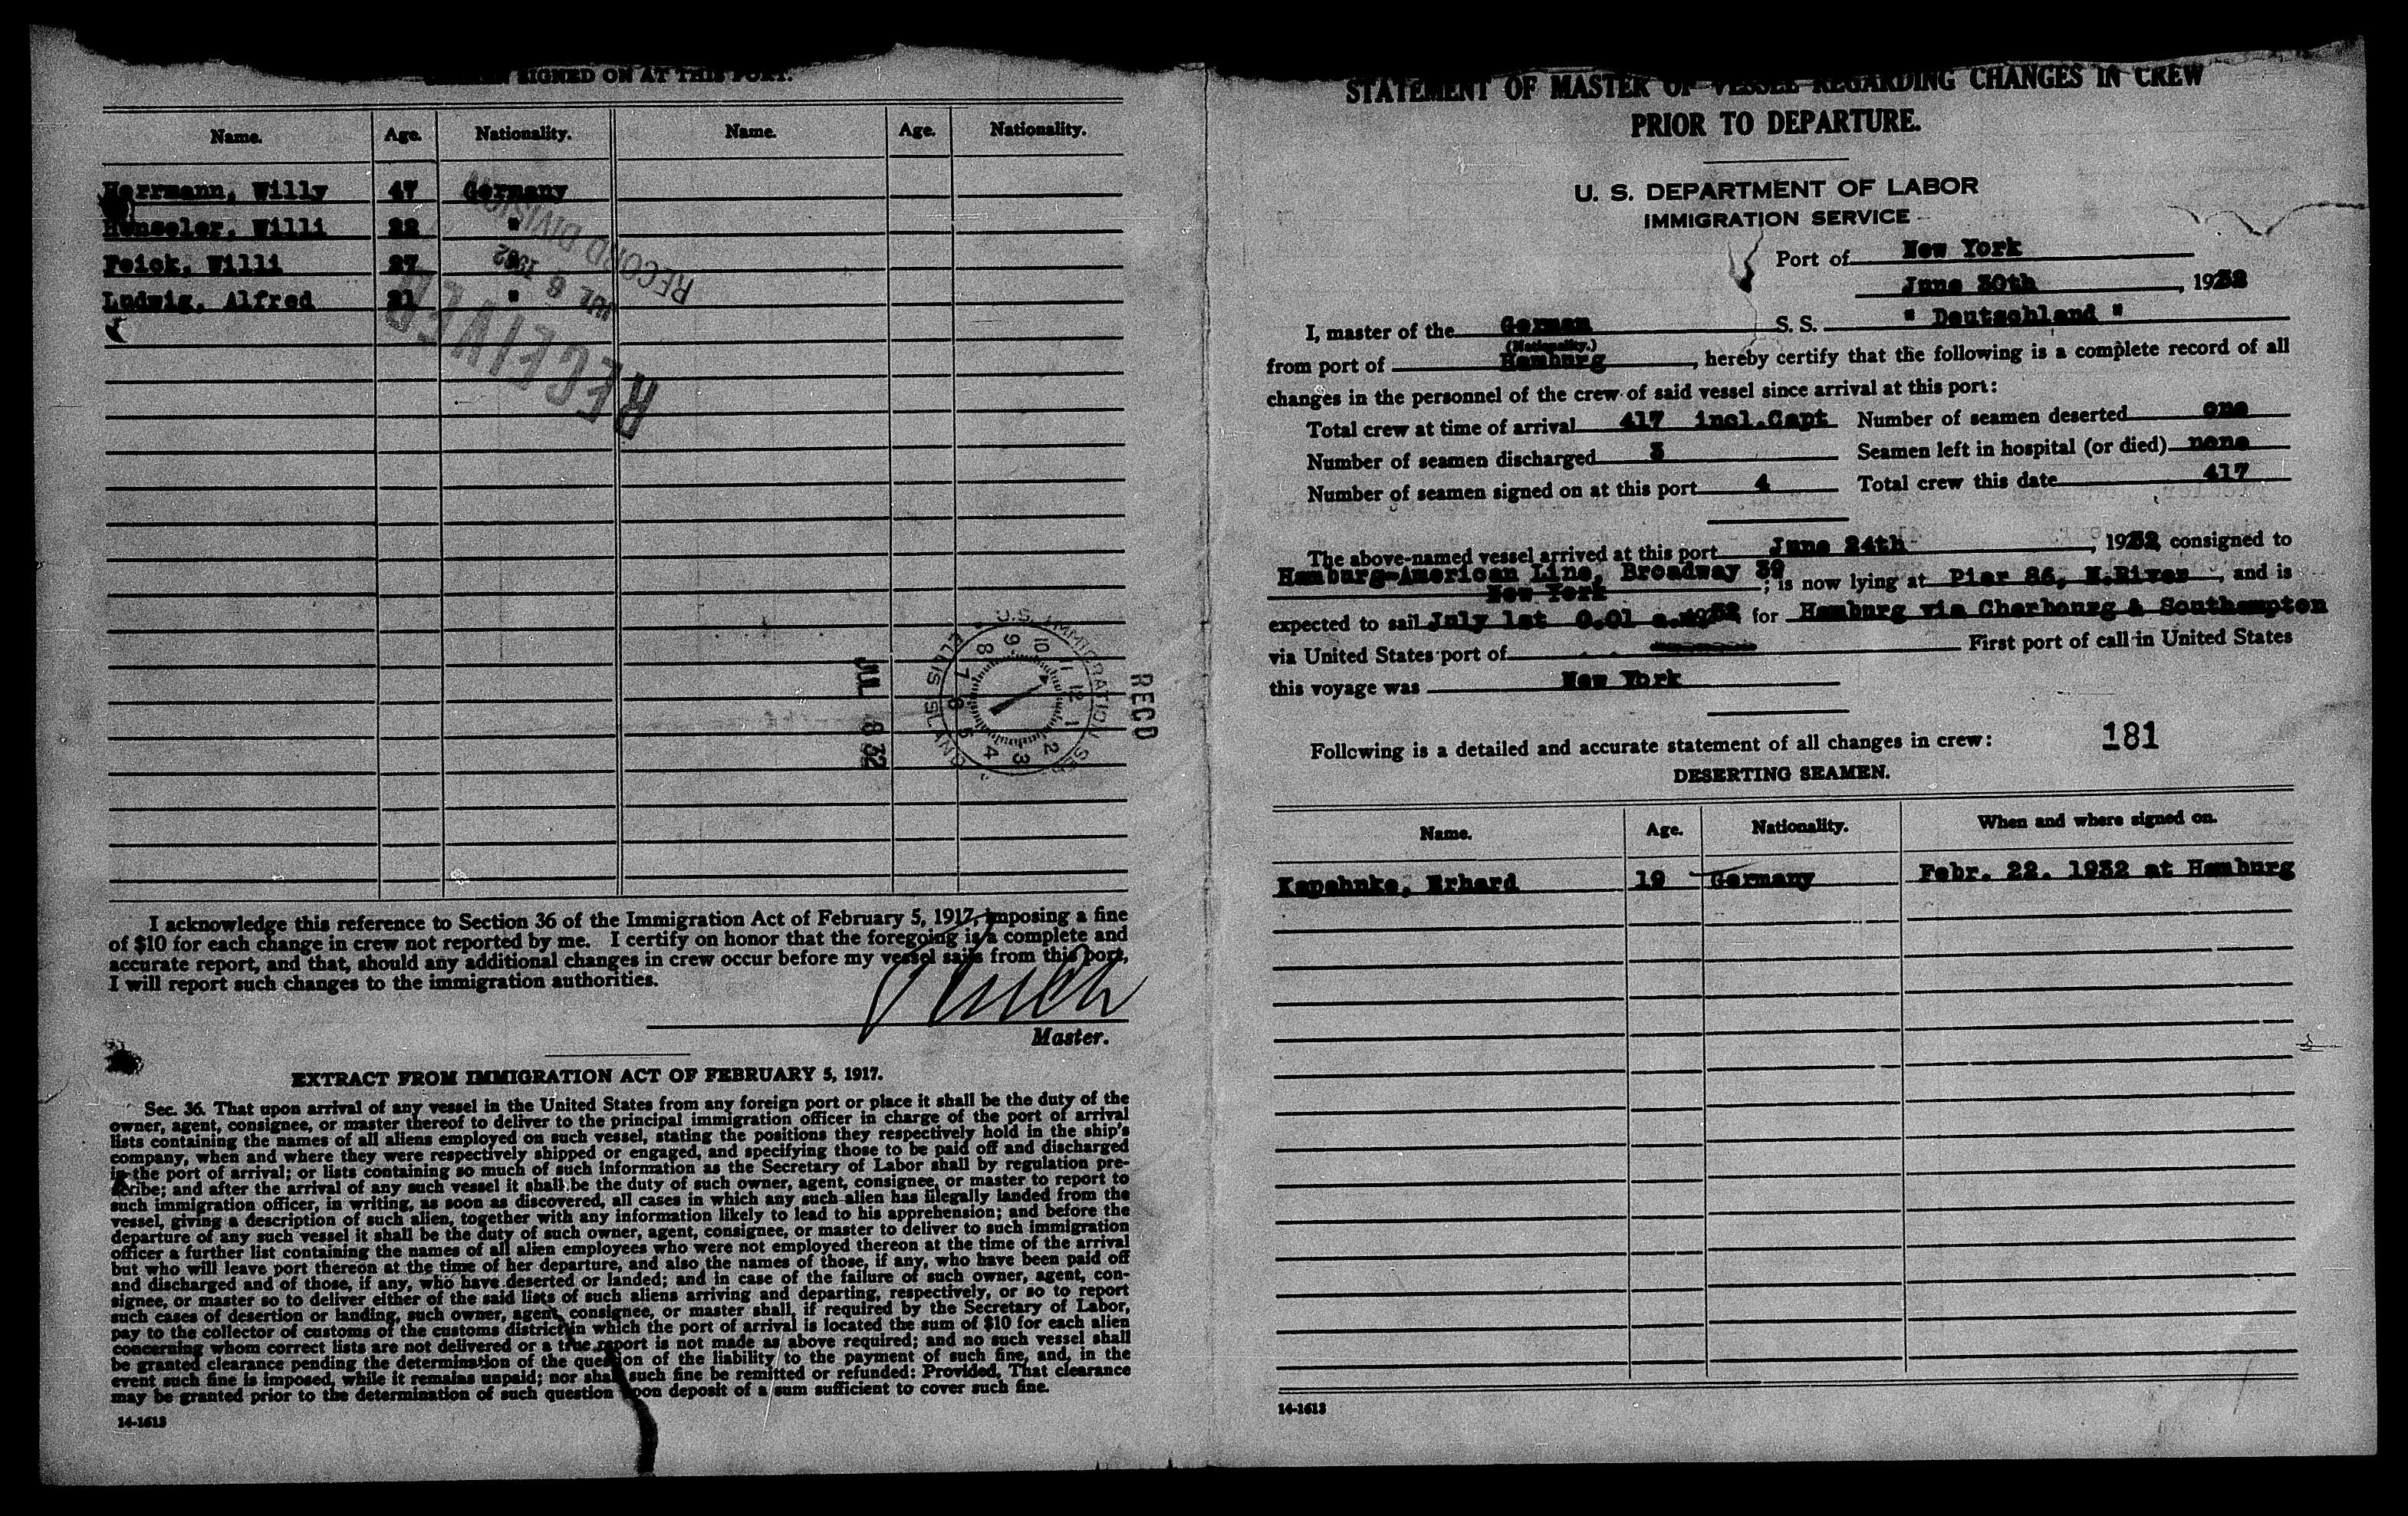 SIGNED ON AT THIS PORT.
Name. Age. Nationality. Name. Age. Nationality.
Herrmann, Willy 47 Germany
Henseler, Willi 22 "
Feick, Willi 27 "
Ludwig, Alfred 21 "
RECEIVED
JUL 6 1932
RECORD DIVISION
RECD
JUL 6 32
U.S. IMMIGRATION SER
ELLIS ISLAND
I acknowledge this reference to Section 36 of the Immigration Act of February 5, 1917, imposing a fine
of $10 for each change in crew not reported by me. I certify on honor that the foregoing is a complete and
accurate report, and that, should any additional changes in crew occur before my vessel sails from this port,
I will report such changes to the immigration authorities.
Master.
EXTRACT FROM IMMIGRATION ACT OF FEBRUARY 5, 1917.
Sec. 36. That upon arrival of any vessel in the United States from any foreign port or place it shall be the duty of the
owner, agent, consignee, or master thereof to deliver to the principal immigration officer in charge of the port of arrival
lists containing the names of all aliens employed on such vessel, stating the positions they respectively hold in the ship's
company, when and where they were respectively shipped or engaged, and specifying those to be paid off and discharged
in the port of arrival; or lists containing so much of such information as the Secretary of Labor shall by regulation pre-
scribe; and after the arrival of any such vessel it shall be the duty of such owner, agent, consignee, or master to report to
such immigration officer, in writing, as soon as discovered, all cases in which any such alien has illegally landed from the
vessel, giving a description of such alien, together with any information likely to lead to his apprehension; and before the
departure of any such vessel it shall be the duty of such owner, agent, consignee, or master to deliver to such immigration
officer a further list containing the names of all alien employees who were not employed thereon at the time of the arrival
but who will leave port thereon at the time of her departure, and also the names of those, if any, who have been paid off
and discharged and of those, if any, who have deserted or landed; and in case of the failure of such owner, agent, con-
signee, or master so to deliver either of the said lists of such aliens arriving and departing, respectively, or so to report
such cases of desertion or landing, such owner, agent, consignee, or master shall, if required by the Secretary of Labor,
pay to the collector of customs of the customs district in which the port of arrival is located the sum of $10 for each alien
concerning whom correct lists are not delivered or a true report is not made as above required; and no such vessel shall
be granted clearance pending the determination of the question of the liability to the payment of such fine, and, in the
event such fine is imposed, while it remains unpaid; nor shall such fine be remitted or refunded: Provided, That clearance
may be granted prior to the determination of such question upon deposit of a sum sufficient to cover such fine.
14-1613
STATEMENT OF MASTER OF VESSEL REGARDING CHANGES IN CREW
PRIOR TO DEPARTURE.
U. S. DEPARTMENT OF LABOR
IMMIGRATION SERVICE
Port of New York
June 30th, 1932
I, master of the German S. S. " Deutschland "
(Nationality.)
from port of Hamburg, hereby certify that the following is a complete record of all
changes in the personnel of the crew of said vessel since arrival at this port:
Total crew at time of arrival 417 incl.Capt Number of seamen deserted one
Number of seamen discharged 3 Seamen left in hospital (or died) none
Number of seamen signed on at this port 4 Total crew this date 417
The above-named vessel arrived at this port June 24th, 1932, consigned to
Hamburg-American Line, Broadway 39
New York; is now lying at Pier 86, N.River, and is
expected to sail July 1st 0.01 a.m 1932 for Hamburg via Cherbourg & Southampton
via United States port of First port of call in United States
this voyage was New York
181
Following is a detailed and accurate statement of all changes in crew:
DESERTING SEAMEN.
Name. Age. Nationality. When and where signed on.
Kapahnke, Erhard 19 Germany Febr. 22. 1932 at Hamburg
14-1613